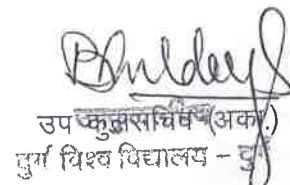 उप कुलसचिव (अका.)
दुर्ग विश्व विद्यालय – दुर्ग